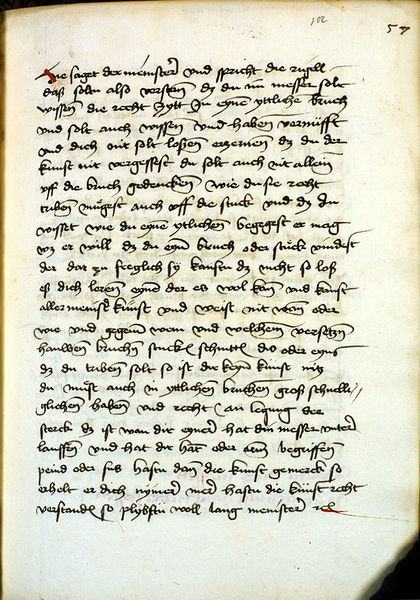 102
57
Hie saget der meinster vnd spricht die rugell
daß soltu also versten dz du im messer solt
wissen die recht zytt In eyne yttliche bruch
vnd solt auch wyssen vnd haben vernüfft
vnd dich nit solt loßen erzernen dz du der
kunst nit vergessest du solt auch nit allein
vff die bruch gedencken wie du sie recht
triben mügest auch vff die stuck vnd dz du
wisset wie du eyne ytlichen begegest er mag
er will dz du eyn bruch oder stück vindest
der dar zu freglich sy kanstu dz nicht so loß
eß dich leren eyner der es wol kan vnd kanst
aller meinst kunst vnd weist nit wan oder
wie vnd gegen wem vnd welchem versetzen
hauwen bruchen stucken schnitten dio oder eyns
dz du triben solt so ist dir keyn kunst nutz
du must auch in yttlichen bruchen groß schnelli//
glichen haben vnd recht an legung der
sterck dz ist wan dir eyner hat din messer vnter
lauffen vnd hat dir hant oder arm begriffen
peind oder sus hastu dan die kunst gemerck so
erhelt er dich nymer mer hastu die künst recht
verstanden so plybstu woll lang meinster